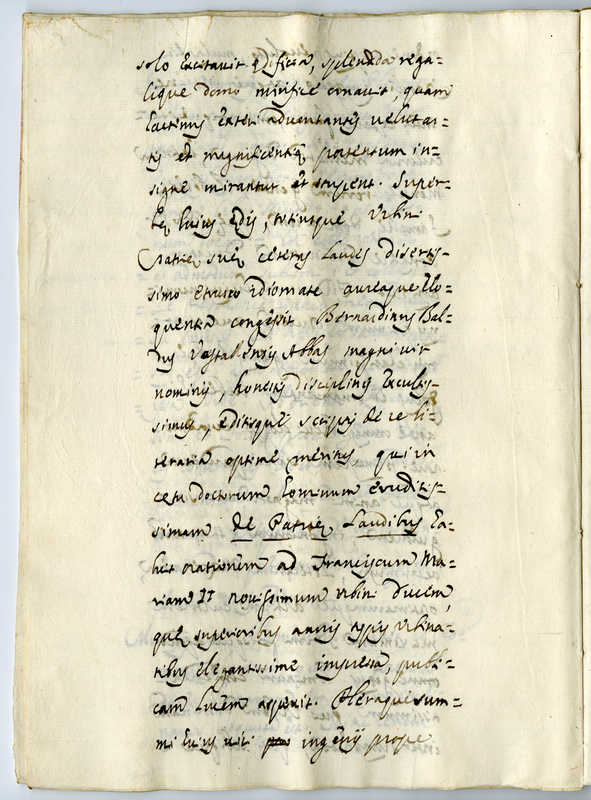 solo excitavit ędificia, splendida rega=
lique domo mirifice ornavit, quam
hactenus exteri adventantes velut ar=
tis et magnificentię portentum in=
signe mirantur et stupent. Super=
bę huius ędis, totiusque Urbini
Patrię suę cęteras laudes disertis=
simo etrusco idiomate aureaque elo=
quentia congessit Bernardinus Bal=
dus Vastallensis Abbas magni vir
nominis, honestis disciplinis excultis=
simus, editisque scriptis de re li=
teraria optime meritus, qui in
cętu doctorum hominum eruditis=
simam de Patrię Laudibus ha=
buit orationem ad Franciscum Ma=
riam II novissimum Urbini Ducem,
quę superioribus annis typis Urbina=
tibus elegantissime impressa, publi=
cam lucem aspexit. Pleraque sum=
mi huius viri ingenii prope